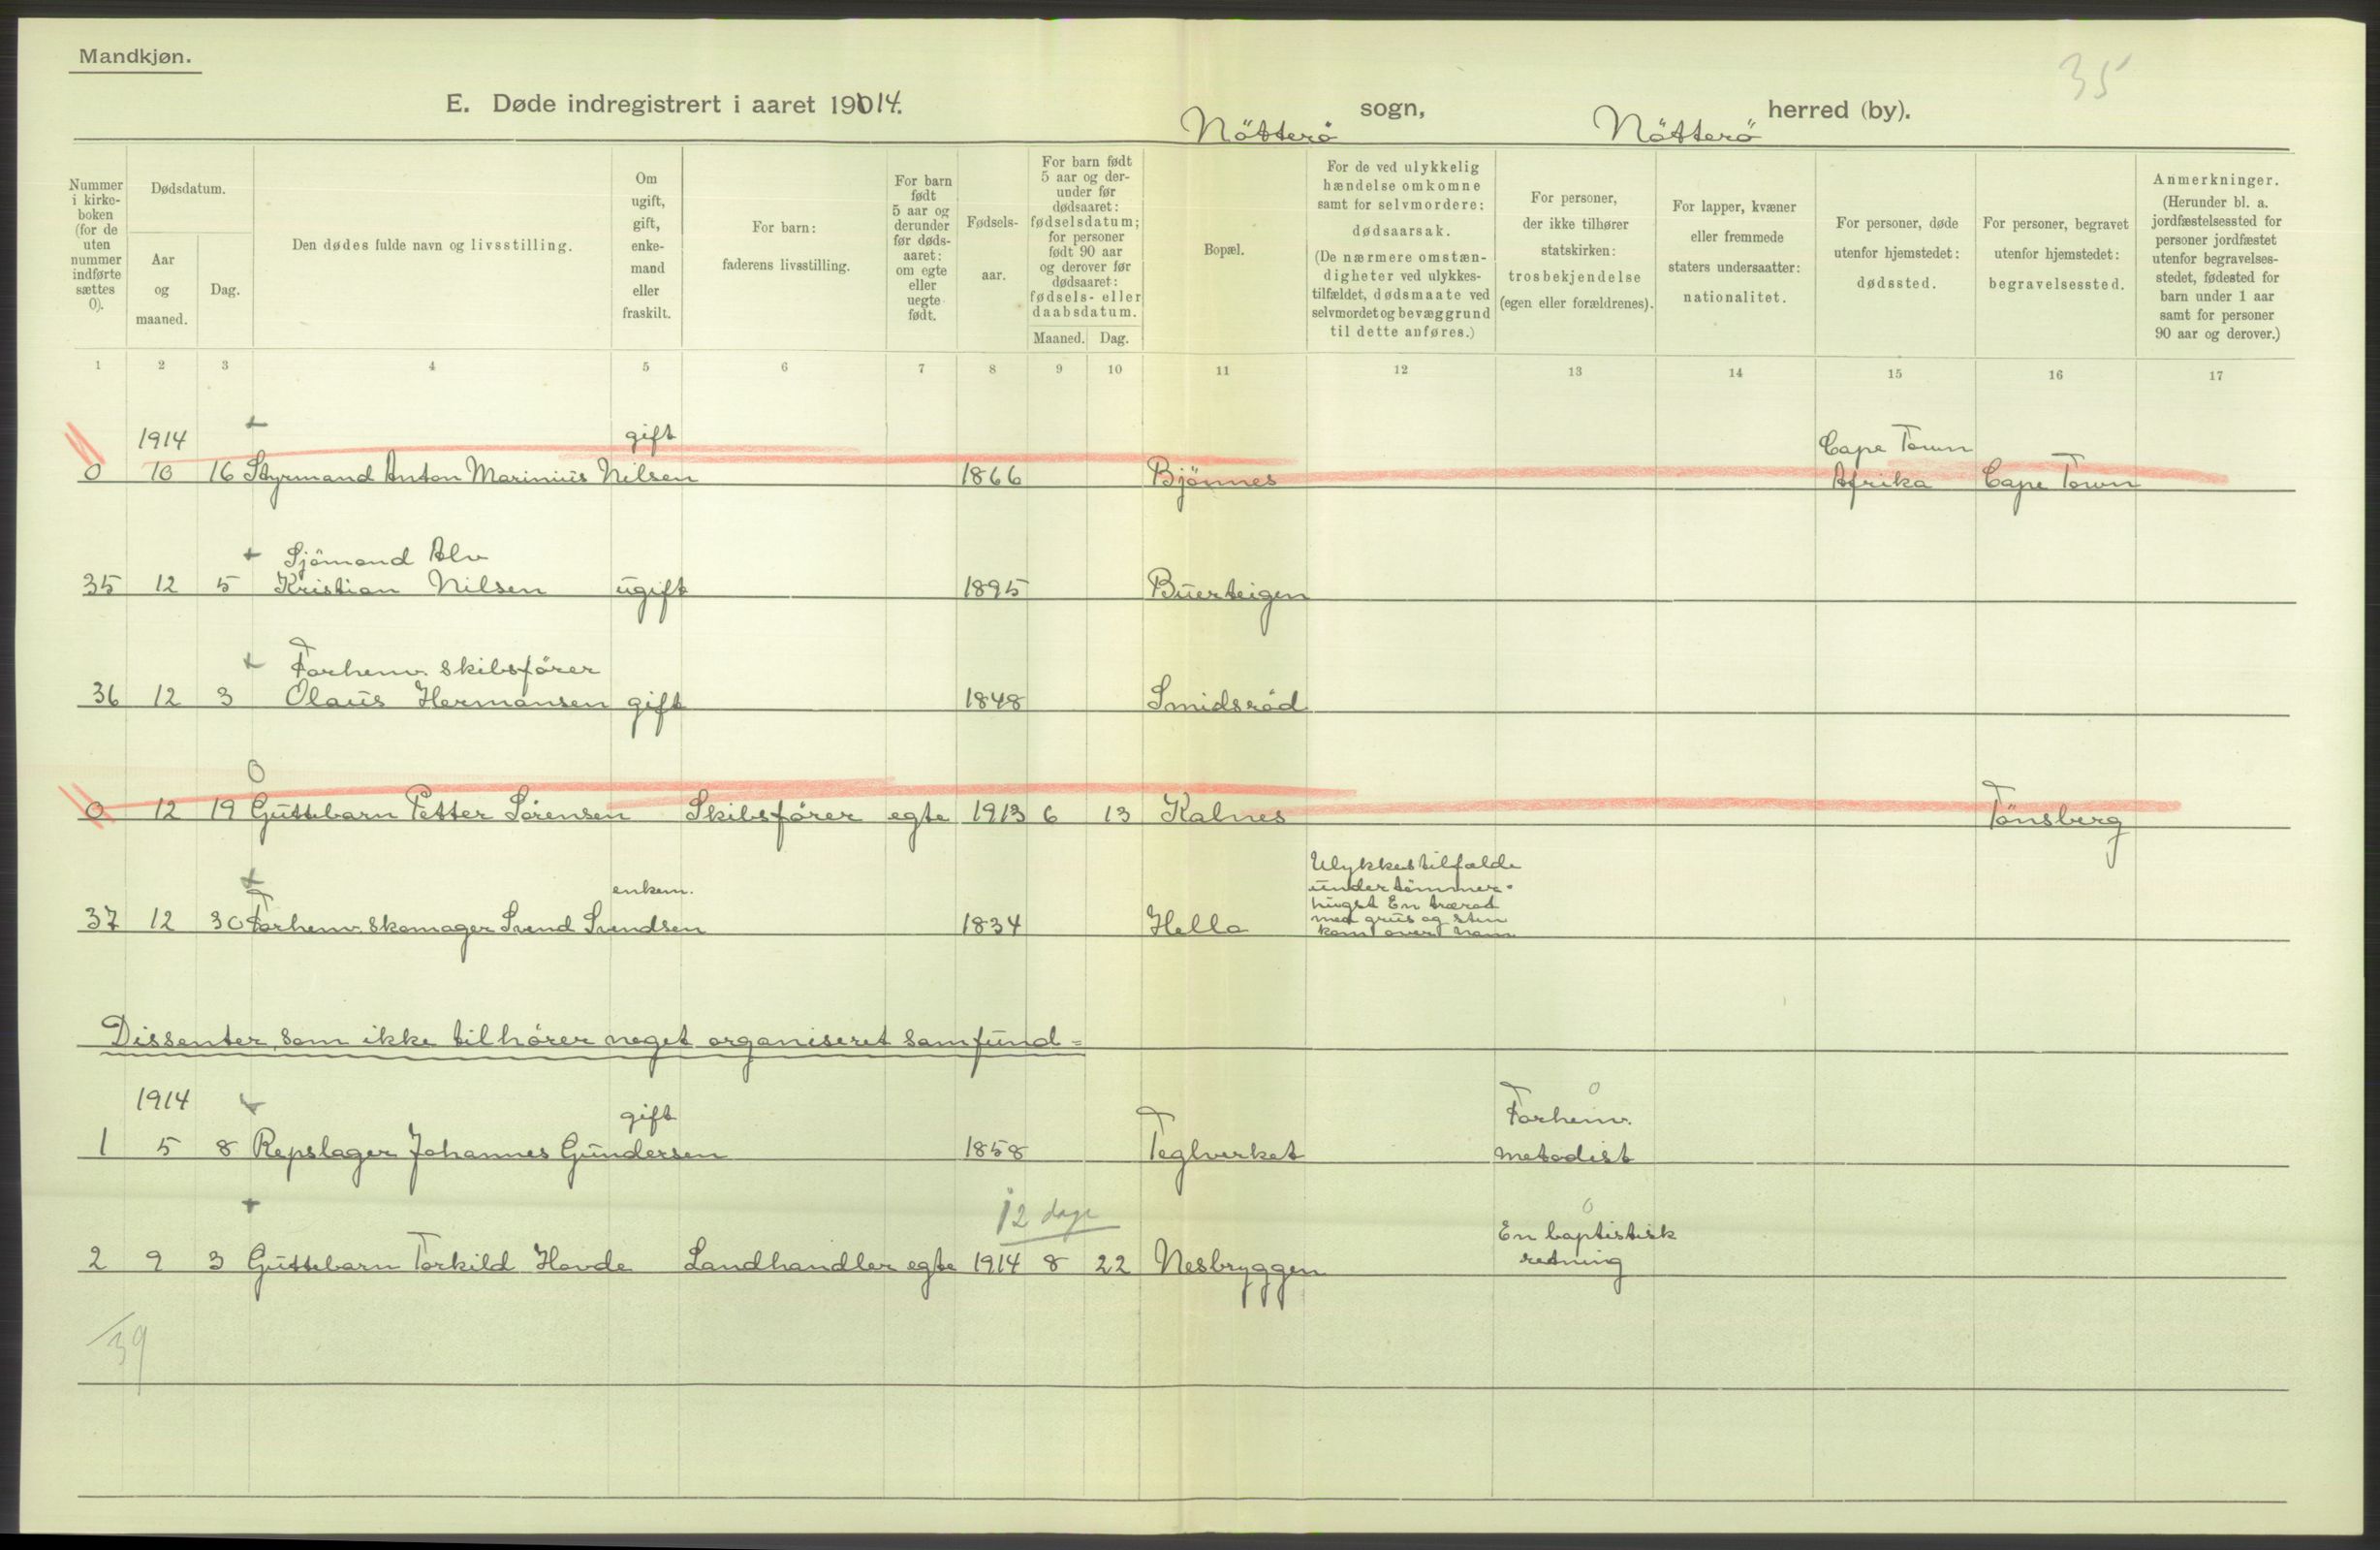 Mandkjøn.
35
E. Døde indregistrert i aaret 19014. Nötterö sogn, Nötterö herred (by).
Nummer i kirke-boken (for de uten nummer indførte sættes 0).
Dødsdatum.
Aar og maaned.
Dag.
Den dødes fulde navn og livsstilling.
Om ugift, gift, enke-mand eller fraskilt.
For barn: faderens livsstilling.
For barn født 5 aar og derunder før døds-aaret: om egte eller uegte født.
Fødsels-aar.
For barn født 5 aar og der-under før dødsaaret: fødselsdatum; for personer født 90 aar og derover før dødsaaret: fødsels- eller daabsdatum.
Maaned. Dag.
Bopæl.
For de ved ulykkelig hændelse omkomne samt for selvmordere: dødsaarsak. (De nærmere omstæn-digheter ved ulykkes-tilfældet, dødsmaate ved selvmordet og bevæggrund til dette anføres.)
For personer, der ikke tilhører statskirken: trosbekjendelse (egen eller forældrenes).
For lapper, kvæner eller fremmede staters undersaatter: nationalitet.
For personer, døde utenfor hjemstedet: dødssted.
For personer, begravet utenfor hjemstedet: begravelsessted.
Anmerkninger. (Herunder bl. a. jordfæstelsessted for personer jordfæstet utenfor begravelses-stedet, fødested for barn under 1 aar samt for personer 90 aar og derover.)
1 2 3 4 5 6 7 8 9 10 11 12 13 14 15 16 17
1914 gift Cape Town
0 10 16 Styrmand Anton Marinius Nilsen 1866 Bjönnes Afrika Cape Town
Sjömand Alv
35 12 5 Kristian Nilsen ugift 1895 Buerteigen
Forhenv. skibsförer
36 12 3 Olaus Hermansen gift 1848 Smidsröd
0
0 12 19 Guttebarn Petter Sörensen Skibsförer egte 1913 6 13 Kalnes Tönsberg
enkem. Ulykkestilfælde
under tömmer-
hugst En trærod
med grus og sten
37 12 30 Forhenv. skomager Svend Svendsen 1834 Hella kom over ham
Dissenter, som ikke tilhörer noget organiseret samfund =
1914 gift Forhenv.
1 5 8 Repslager Johannes Gundersen 1858 Teglverket metodist
12 dage En baptistisk
2 9 3 Guttebarn Torkild Hovde Landhandler egte 1914 8 22 Nesbryggen retning
39